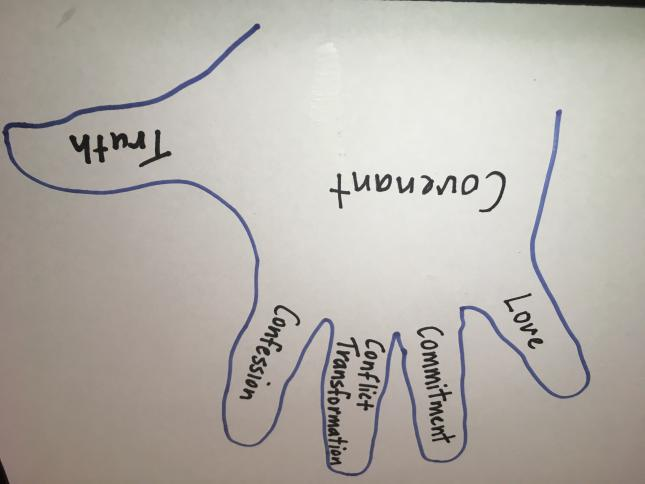 Truth
Covenant
Confession
Conflict
Transformation
Commitment
Love